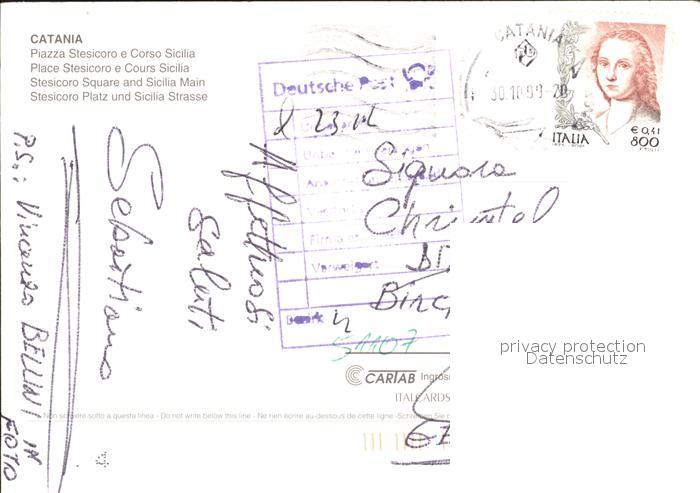 CATANIA
Piazza Stesicoro e Corso Sicilia
Place Stesicoro e Cours Sicilia
Stesicoro Square and Sicilia Main
Stesicoro Platz und Sicilia Strasse
CATANIA
30.10.99-20
€ 0,41
ITALIA 800
Deutsche Post
23.
Verweigert
Signora
Christal
51107
Affettuosi
saluti
Sebastiano
P.S.: Vincenzo BELLINI IN
FOTO
CARTAB Ingros
ITALCARDS
Non scrivere sotto a questa linea - Do not write below this line - Ne rien écrire au-dessous de cette ligne -
privacy protection
Datenschutz